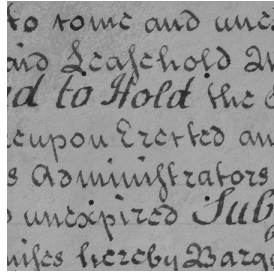 to come and une
aid Leasehold
ed to Hold the
eupon Erected an
s Administrators
unexpired Sub
mises hereby Barg